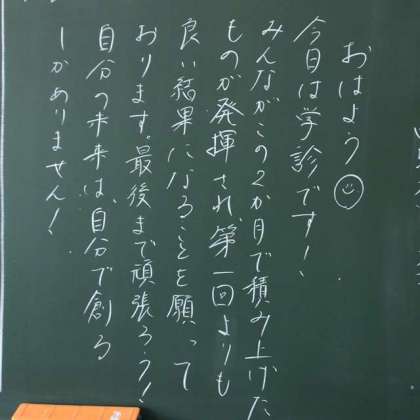 おはよう☺
今日は学診です!
みんながこの2か月で積み上げた
ものが発揮され、第一回よりも
良い結果になることを願って
おります。最後まで頑張ろう!
自分の未来は、自分で創る
しかありません!